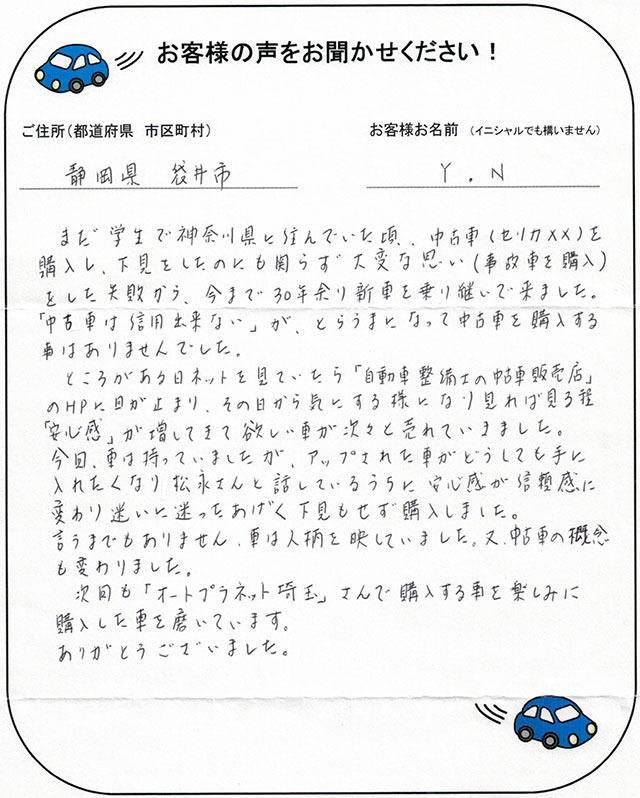 お客様の声をお聞かせください!
ご住所(都道府県 市区町村)
お客様お名前 (イニシャルでも構いません)
静岡県 袋井市
Y.N
まだ学生で神奈川県に住んでいた頃、中古車(セリカXX)を
購入し、下見をしたのにも関らず大変な思い(事故車を購入)
をした失敗から、今まで30年余り新車を乗り継いで来ました。
「中古車は信用出来ない」が、とらうまになって中古車を購入する
事はありませんでした。
ところがある日ネットを見ていたら「自動車整備士の中古車販売店」
のHPに目が止まり、その日から気にする様になり見れば見る程
「安心感」が増してきて欲しい車が次々と売れていきました。
今回、車は持っていましたが、アップされた車がどうしても手に
入れたくなり松永さんと話しているうちに安心感が信頼感に
変わり迷いに迷ったあげく下見もせず購入しました。
言うまでもありません、車は人柄を映していました。又、中古車の概念
も変わりました。
次回も「オートプラネット埼玉」さんで購入する車を楽しみに
購入した車を磨いています。
ありがとうございました。